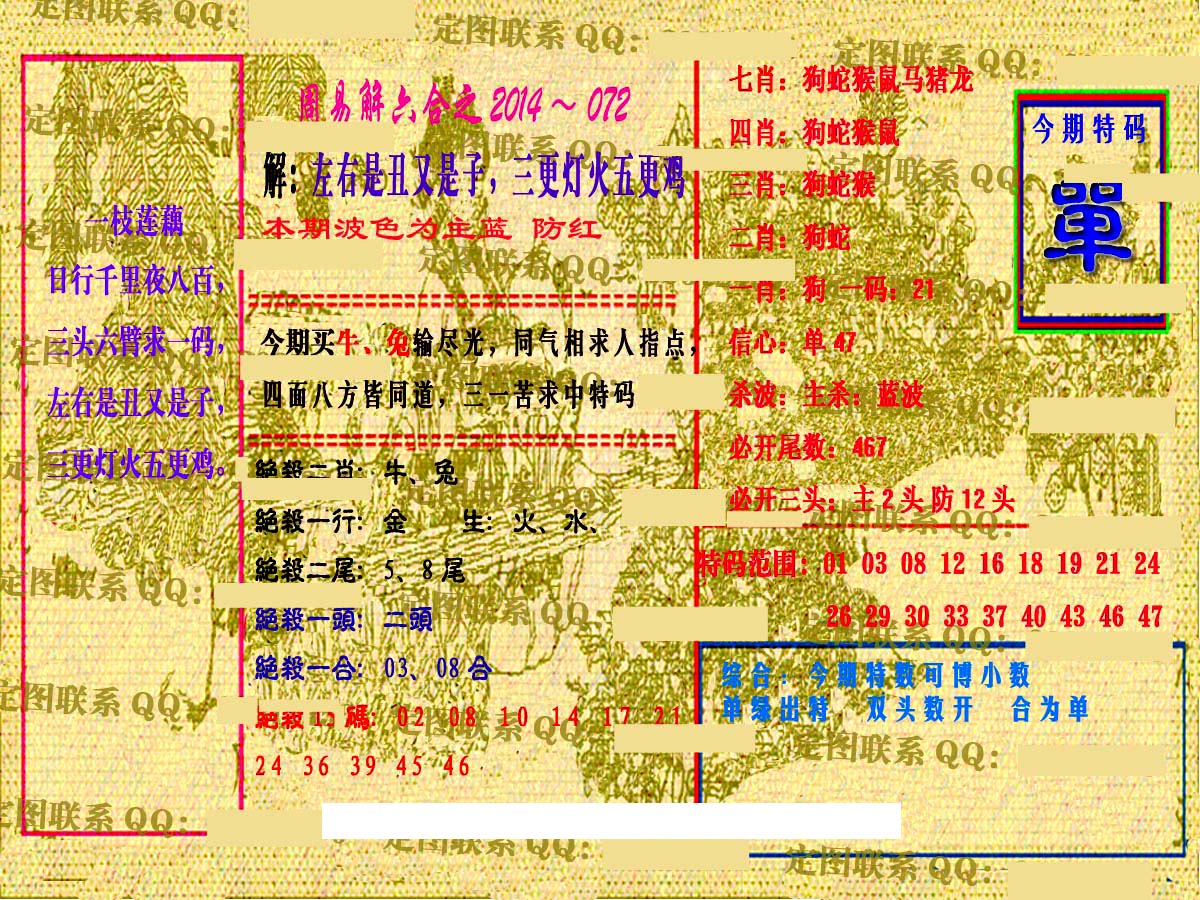 周易解六合之 2014～072
解：左右是丑又是子，三更灯火五更鸡
本期波色为主蓝 防红
一枝莲藕
日行千里夜八百，
三头六臂求一码，
左右是丑又是子，
三更灯火五更鸡。
今期买牛、兔输尽光，同气相求人指点，
四面八方皆同道，三一苦求中特码
絕殺二肖：牛、兔
絕殺一行：金 生：火、水、
絕殺二尾：5、8尾
絕殺一頭：二頭
絕殺一合：03、08合
碼：02 08 10 14 17 21
24 36 39 45 46
七肖：狗蛇猴鼠马猪龙
四肖：狗蛇猴鼠
三肖：狗蛇猴
二肖：狗蛇
一肖：狗 一码：21
信心：单 47
杀波：主杀：蓝波
必开尾数：467
必开三头：主 2 头 防 12 头
特码范围：01 03 08 12 16 18 19 21 24
26 29 30 33 37 40 43 46 47
今期特码
單
综合：今期特数可博小数
单绿出特 双头数开 合为单
定图联系 QQ：
定图联系 QQ：
定图联系 QQ：
定图联系 QQ：
定图联系 QQ：
定图联系 QQ：
定图联系 QQ：
定图联系 QQ：
定图联系 QQ：